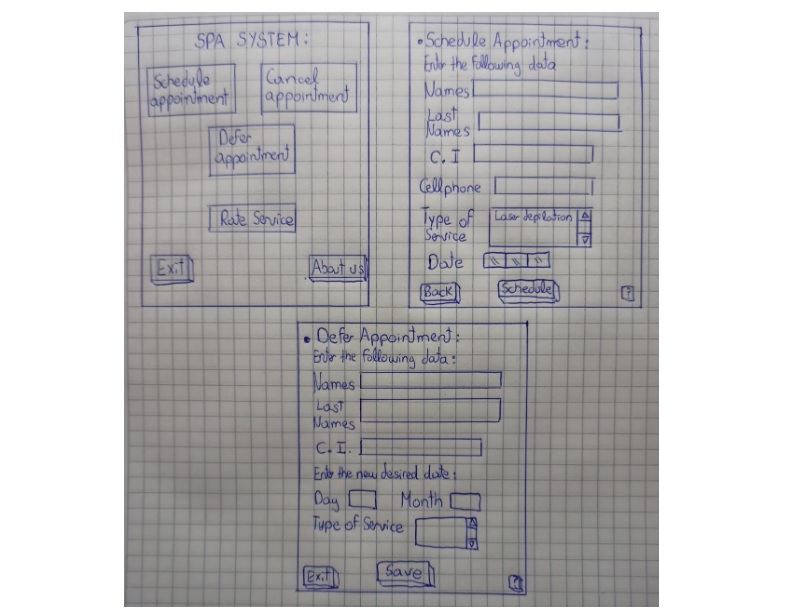 SPA SYSTEM:
Schedule
appointment
Cancel
appointment
Defer
appointment
Rate Service
Exit
About us
• Schedule Appointment:
Enter the following data
Names
Last
Names
C. I
Cellphone
Type of
Service
Laser depilation
Date
Back
Schedule
?
• Defer Appointment:
Enter the following data:
Names
Last
Names
C. I.
Enter the new desired date:
Day
Month
Type of Service
Exit
Save
?